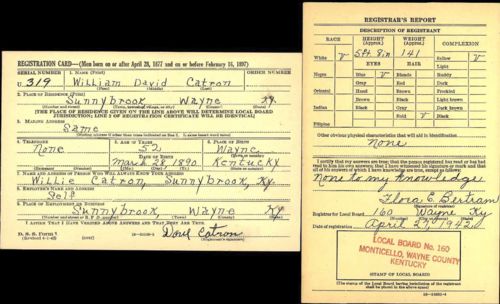 REGISTRATION CARD—(Men born on or after April 28, 1877 and on or before February 16, 1897)
SERIAL NUMBER 1. NAME (Print) ORDER NUMBER
U 319 William David Catron
(First) (Middle) (Last)
2. PLACE OF RESIDENCE (Print)
Sunnybrook Wayne Ky.
(Number and street) (Town, township, village, or city) (County) (State)
[THE PLACE OF RESIDENCE GIVEN ON THE LINE ABOVE WILL DETERMINE LOCAL BOARD
JURISDICTION; LINE 2 OF REGISTRATION CERTIFICATE WILL BE IDENTICAL]
3. MAILING ADDRESS
Same
(Mailing address if other than place indicated on line 2. If same insert word same)
4. TELEPHONE 5. AGE IN YEARS 6. PLACE OF BIRTH
None 52 Wayne
DATE OF BIRTH (Town or county)
March 28 1890 Kentucky
(Mo.) (Day) (Yr.) (State or country)
7. NAME AND ADDRESS OF PERSON WHO WILL ALWAYS KNOW YOUR ADDRESS
Willie Catron, Sunnybrook, Ky.
8. EMPLOYER'S NAME AND ADDRESS
Self
9. PLACE OF EMPLOYMENT OR BUSINESS
Sunnybrook Wayne Ky
(Number and street or R. F. D. number) (Town) (County) (State)
I AFFIRM THAT I HAVE VERIFIED ABOVE ANSWERS AND THAT THEY ARE TRUE.
D. S. S. Form
Catron
(Registrant's signature)
REGISTRAR'S REPORT
DESCRIPTION OF REGISTRANT
RACE HEIGHT (Approx.) WEIGHT (Approx.) COMPLEXION
White v 5ft. 8in 141 Sallow v
EYES HAIR Light
Negro Blue v Blonde Ruddy
Gray Red Dark
Oriental Hazel Brown Freckled
Brown Black Light brown
Indian Black Gray Dark brown
Bald v Black
Filipino
Other obvious physical characteristics that will aid in identification
None
I certify that my answers are true; that the person registered has read or has had
read to him his own answers; that I have witnessed his signature or mark and that
all of his answers of which I have knowledge are true, except as follows:
None to my knowledge
Flora E. Bertram
(Signature of registrar)
Registrar for Local Board 160 Wayne Ky
(Number) (City or county) (State)
Date of registration April 27, 1942
LOCAL BOARD No. 160
MONTICELLO, WAYNE COUNTY
KENTUCKY
STAMP OF LOCAL BOARD
(The stamp of the Local Board having jurisdiction of the registrant
shall be placed in the above space)